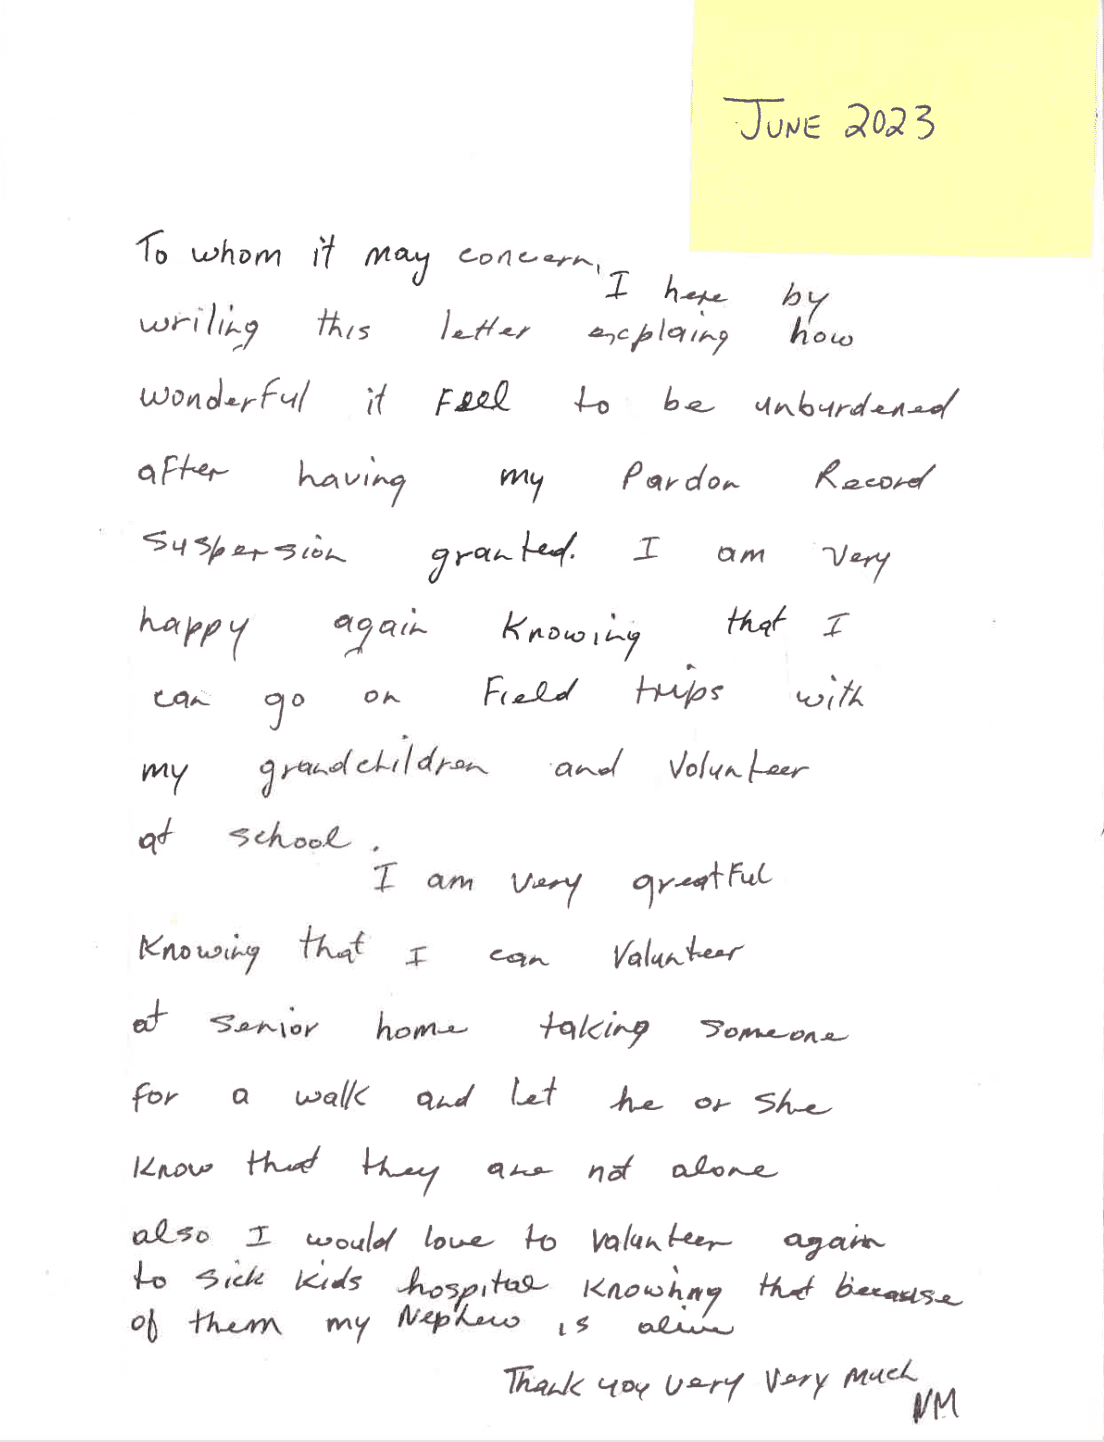 JUNE 2023
To whom it may concern,
I here by
writing this letter explaing how
wonderful it Feel to be unburdened
after having my Pardon Record
suspersion granted. I am very
happy again Knowing that I
can go on Field trips with
my grandchildren and Volunteer
at school.
I am very greatful
Knowing that I can Volunteer
at senior home taking someone
for a walk and let he or she
Know that they are not alone
also I would love to Volunteer again
to sick kids hospital Knowing that because
of them my Nephew is alive
Thank you very very much
NM